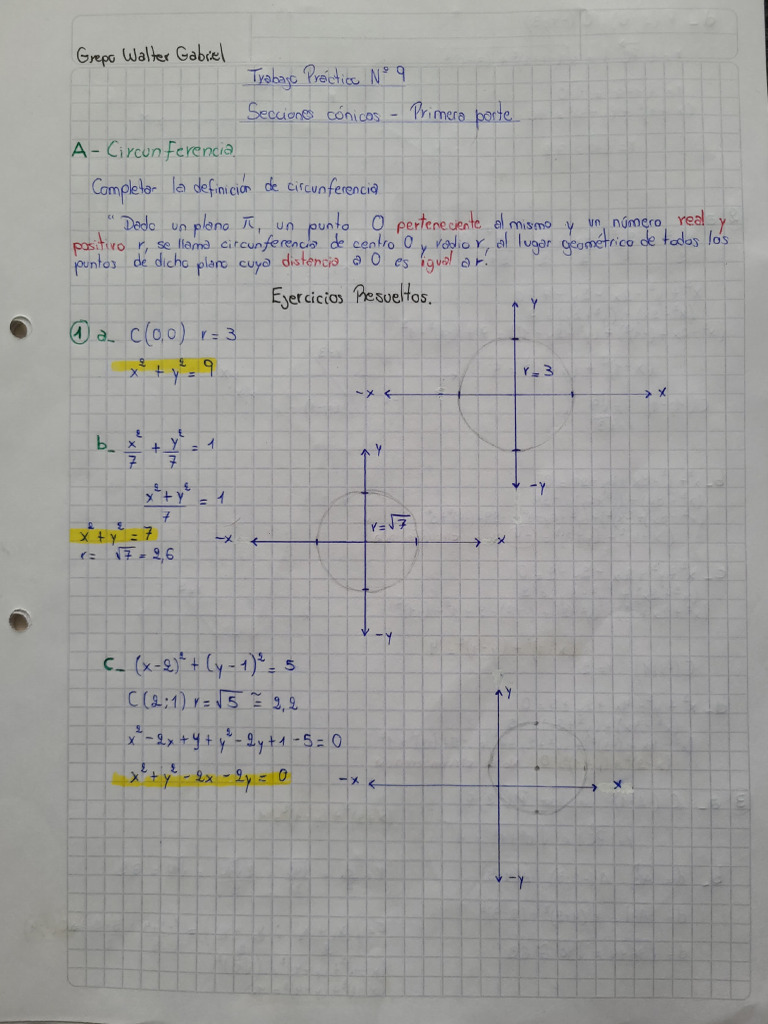 Grepo Walter Gabriel
Trabajo Práctico N° 9
Secciones cónicas - Primera parte
A- Circunferencia.
Completar la definición de circunferencia
"Dado un plano π, un punto O perteneciente al mismo y un número real y
positivo r, se llama circunferencia de centro O y radio r, al lugar geométrico de todos los
puntos de dicho plano cuya distancia a O es igual a r.
Ejercicios Resueltos.
① a- C(0,0) r = 3
x² + y² = 9
y
r = 3
-x
x
-y
b- x²/7 + y²/7 = 1
(x² + y²)/7 = 1
x² + y² = 7
r = √7 = 2,6
y
r = √7
-x
x
-y
c- (x-2)² + (y-1)² = 5
C(2;1) r = √5 ≅ 2,2
x² - 2x + 4 + y² - 2y + 1 - 5 = 0
x² + y² - 2x - 2y = 0
y
-x
x
-y